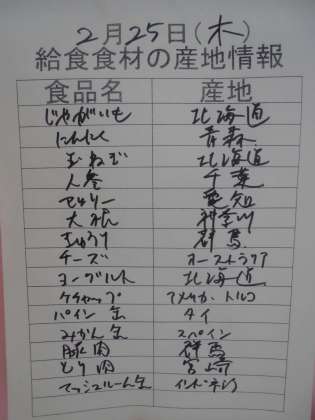 2月25日(木)
給食食材の産地情報
食品名 産地
じゃがいも 北海道
にんにく 青森
玉ねぎ 北海道
人参 千葉
セロリー 愛知
大根 神奈川
きゅうり 群馬
チーズ オーストラリア
ヨーグルト 北海道
ケチャップ アメリカ トルコ
パイン缶 タイ
みかん缶 スペイン
豚肉 群馬
とり肉 宮崎
マッシュルーム缶 インドネシア